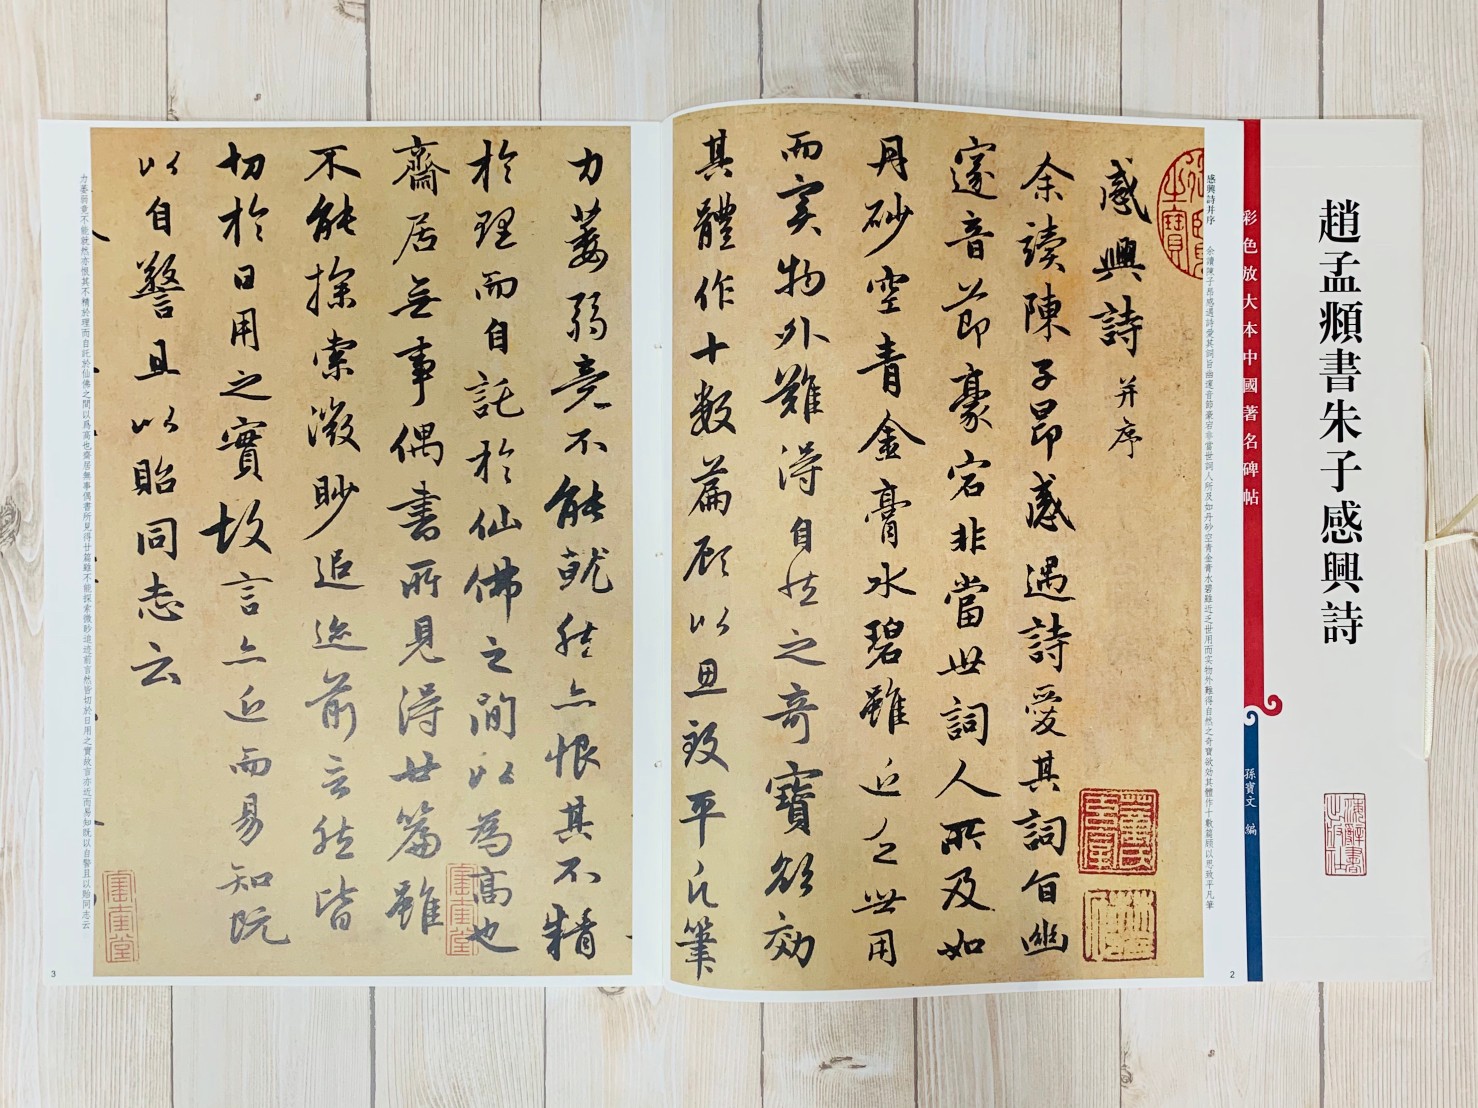 趙孟頫書朱子感興詩
彩色放大本中國著名碑帖
孫寶文 編
感興詩并序 余讀陳子昂感遇詩愛其詞旨幽邃音節豪宕非當世詞人所及如丹砂空青金膏水碧雖近乏世用而实物外難得自然之奇寶欲効其體作十數篇顧以思致平凡筆
感興詩并序
余讀陳子昂感遇詩愛其詞旨幽
邃音節豪宕非當世詞人所及如
丹砂空青金膏水碧雖近乏世用
而实物外難得自然之奇寶欲効
其體作十數篇顧以思致平凡筆
2
力萎弱竟不能就然亦恨其不精
於理而自託於仙佛之間以為高也
齋居無事偶書所見得廿篇雖
不能探索微眇追迹前言然皆
切於日用之實故言亦近而易知既
以自警且以貽同志云
力萎弱竟不能就然亦恨其不精於理而自託於仙佛之間以爲高也齋居無事偶書所見得廿篇雖不能探索微眇追迹前言然皆切於日用之實故言亦近而易知既以自警且以貽同志云
3